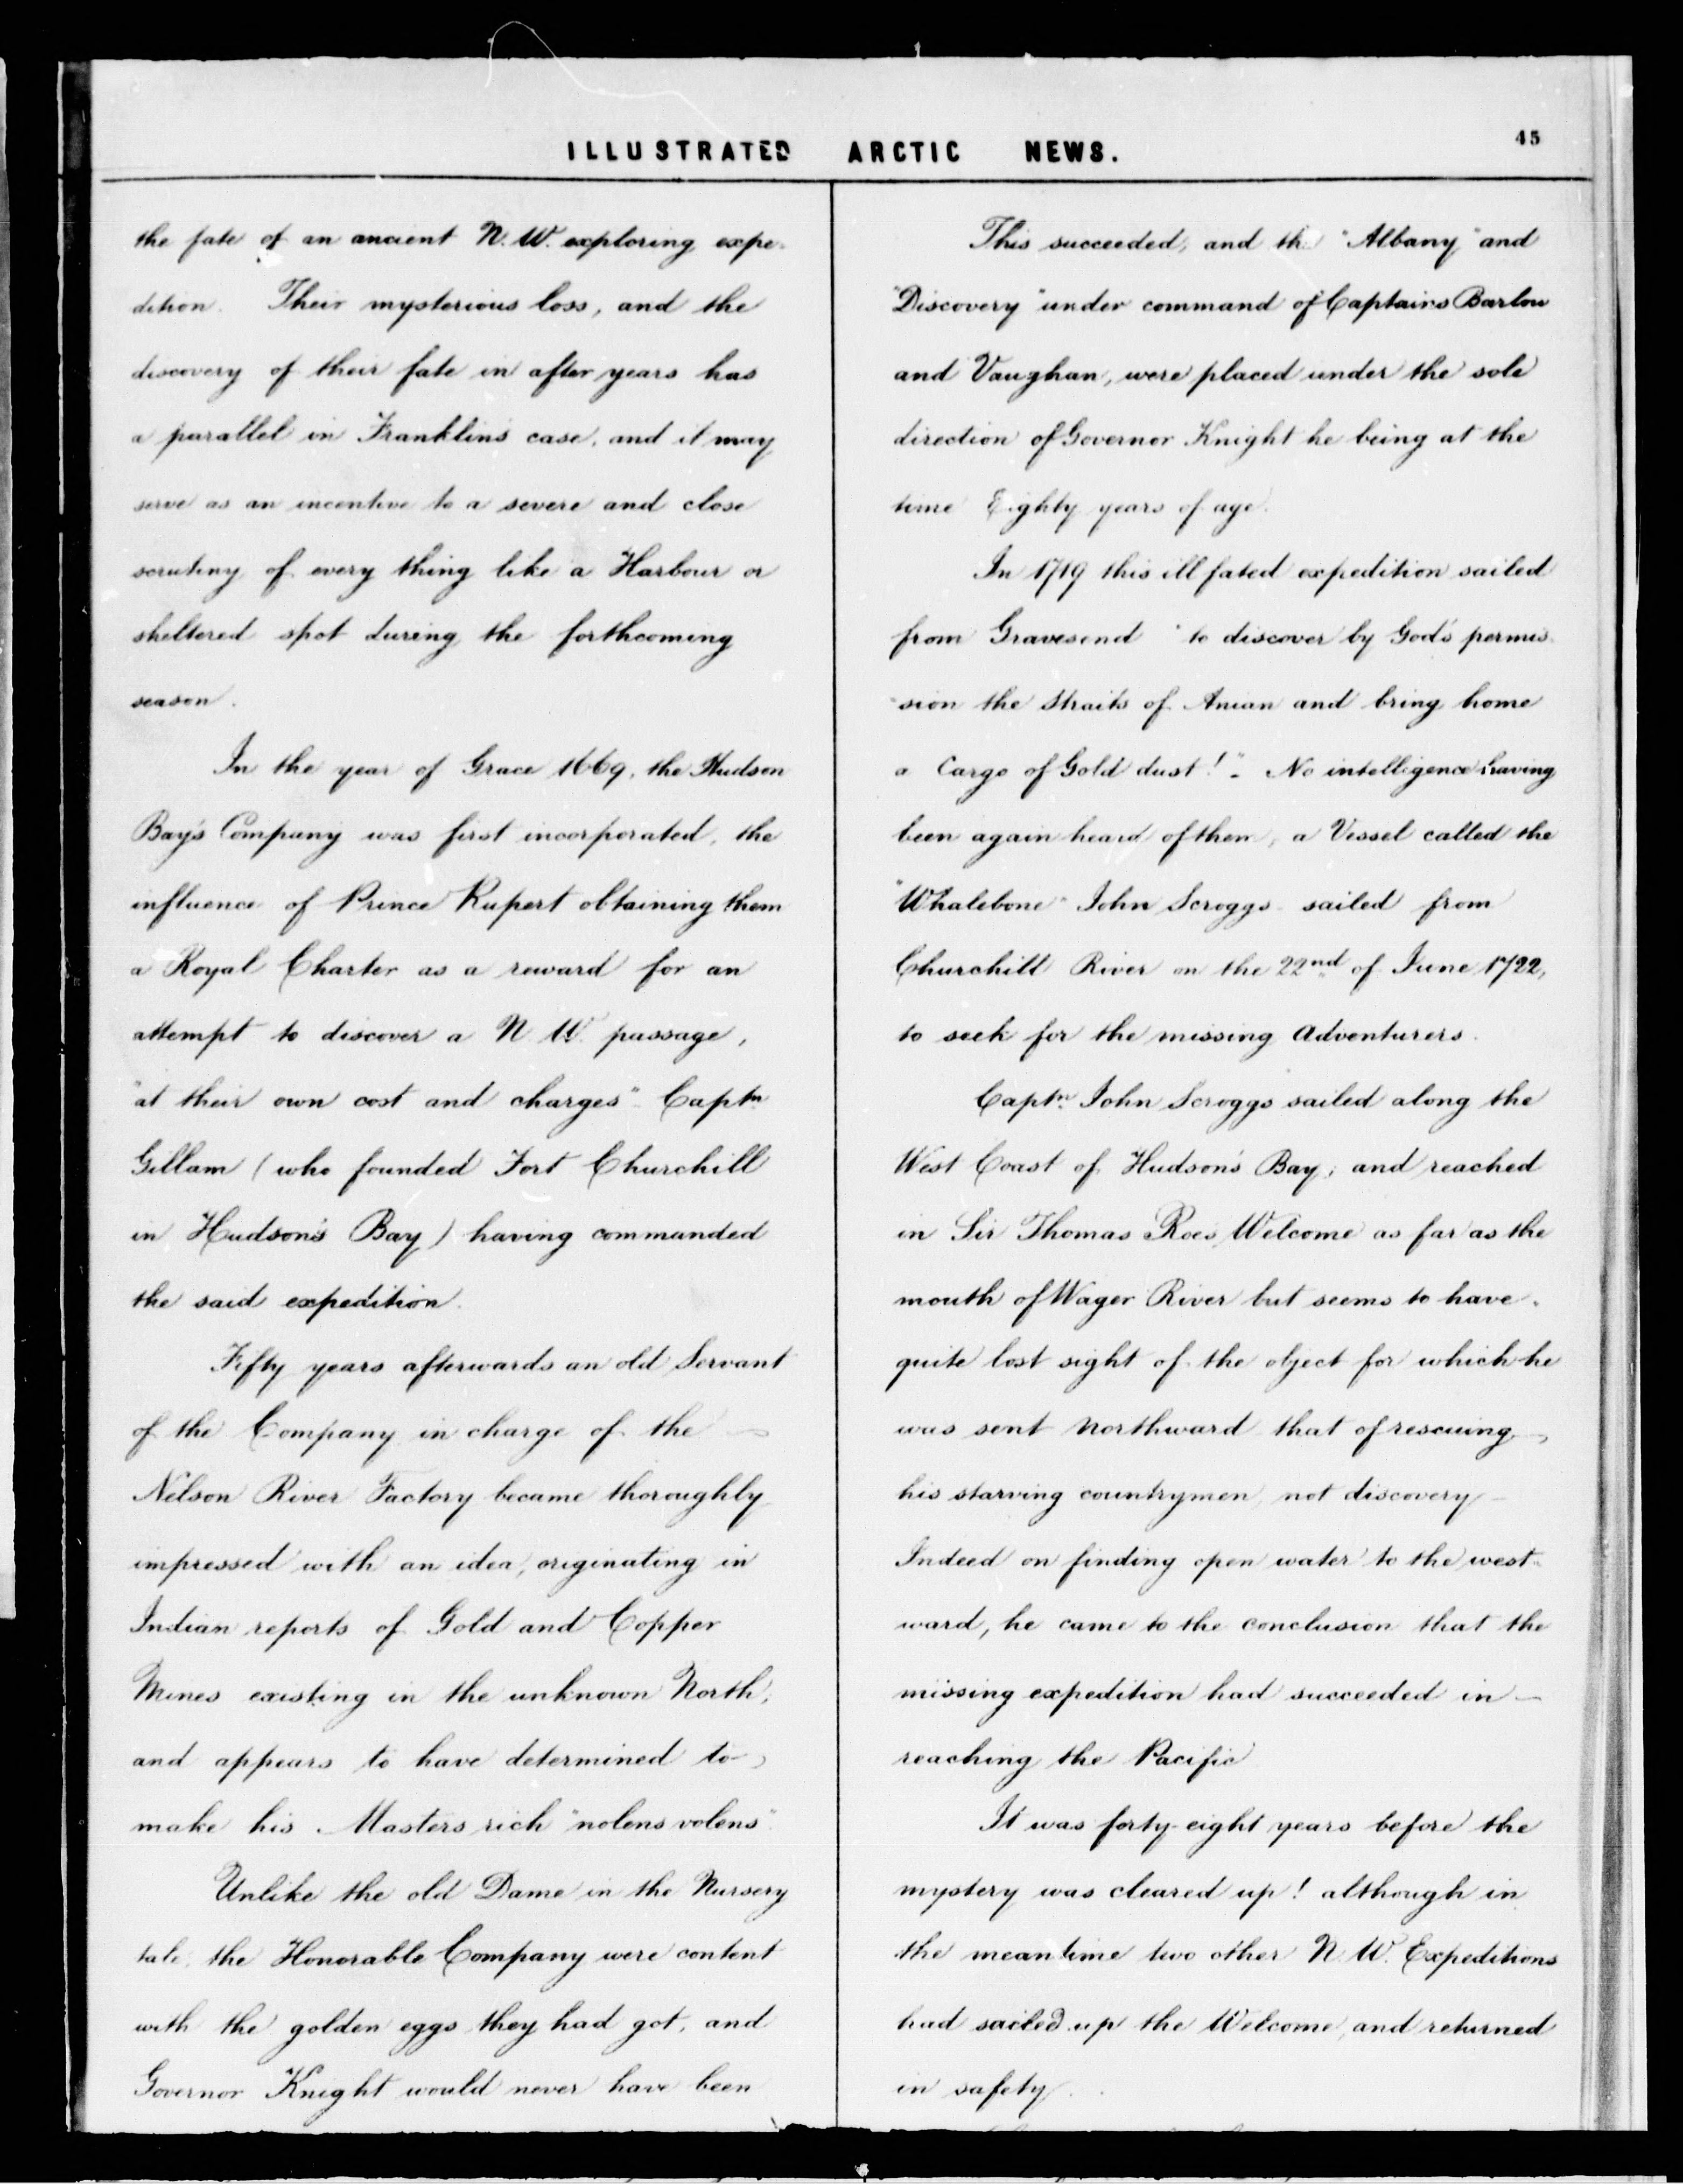 ILLUSTRATED ARCTIC NEWS.
45
the fate of an ancient N. W. exploring expe-
dition. Their mysterious loss, and the
discovery of their fate in after years has
a parallel in Franklin's case, and it may
serve as an incentive to a severe and close
scrutiny of every thing like a Harbour or
sheltered spot during the forthcoming
season.
In the year of Grace 1669, the Hudson
Bay's Company was first incorporated, the
influence of Prince Rupert obtaining them
a Royal Charter as a reward for an
attempt to discover a N W. passage,
"at their own cost and charges" Captn
Gillam (who founded Fort Churchill
in Hudson's Bay) having commanded
the said expedition.
Fifty years afterwards an old Servant
of the Company in charge of the
Nelson River Factory became thoroughly
impressed with an idea, originating in
Indian reports of Gold and Copper
Mines existing in the unknown North,
and appears to have determined to
make his Masters rich "nolens volens".
Unlike the old Dame in the Nursery
tale, the Honorable Company were content
with the golden eggs they had got, and
Governor Knight would never have been
This succeeded, and the "Albany" and
"Discovery" under command of Captains Barlow
and Vaughan, were placed under the sole
direction of Governor Knight he being at the
time Eighty years of age.
In 1719 this ill fated expedition sailed
from Gravesend "to discover by God's permis-
sion the Straits of Anian and bring home
a Cargo of Gold dust!" - No intelligence having
been again heard of them, a Vessel called the
"Whalebone" John Scroggs sailed from
Churchill River on the 22nd of June 1722,
to seek for the missing Adventurers.
Captn John Scroggs sailed along the
West Coast of Hudson's Bay, and reached
in Sir Thomas Roe's Welcome as far as the
mouth of Wager River but seems to have
quite lost sight of the object for which he
was sent Northward that of rescuing
his starving countrymen, not discovery -
Indeed on finding open water to the west-
ward, he came to the conclusion that the
missing expedition had succeeded in -
reaching the Pacific
It was forty-eight years before the
mystery was cleared up! although in
the meantime two other N. W. Expeditions
had sailed up the Welcome, and returned
in safety.